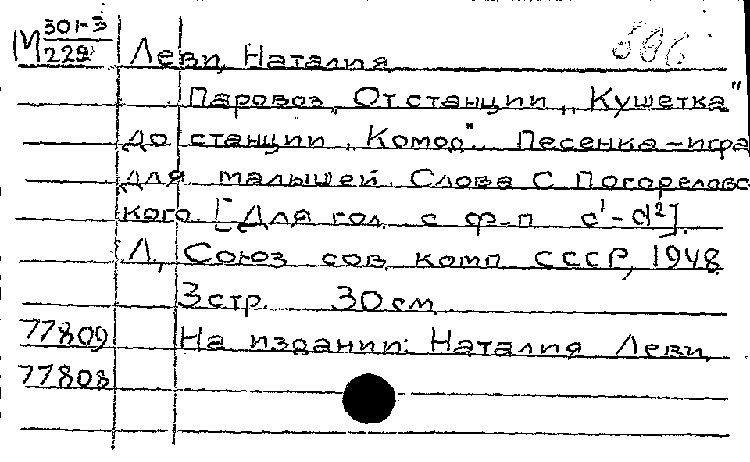 М 301-3
229
Леви, Наталия
Паровоз. От станции „Кушетка"
до станции „Комод". Песенка-игра
для малышей. Слова С. Погореловс
кого. [Для гол. с ф-п c¹-d²].
Л, Союз сов. комп. СССР, 1948.
3 стр. 30 см.
77809 На издании: Наталия Леви.
77808